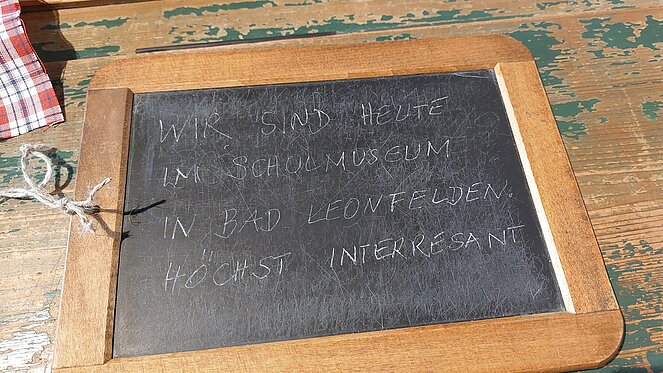 WIR SIND HEUTE
IM SCHULMUSEUM
IN BAD LEONFELDEN.
HÖCHST INTERRESANT